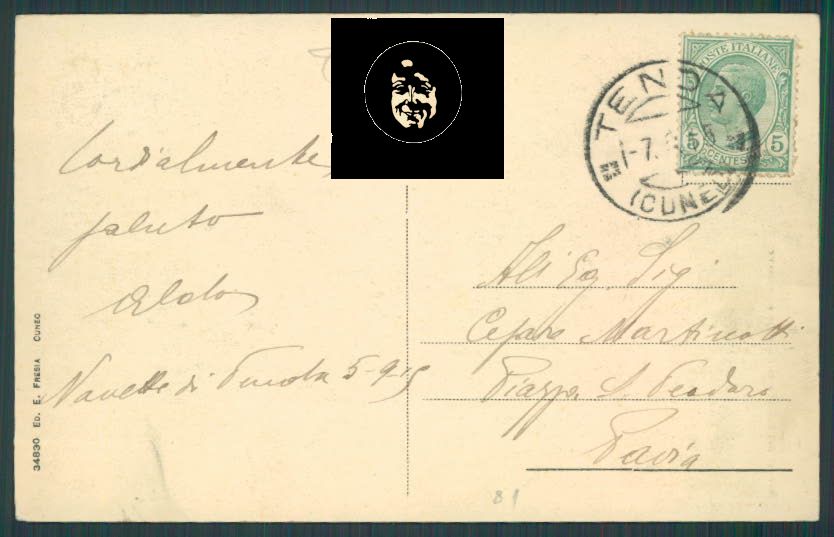 Cordialmente
saluto
Aldo
Navette di Tenda 5-9-15
34830 ED. E. FRESIA CUNEO
POSTE ITALIANE
5 5
CENTES
TENDA
-7.
(CUNEO)
All Eg. Sig.
Cesare Martinotti
Piazza S. Teodoro
Pavia
81